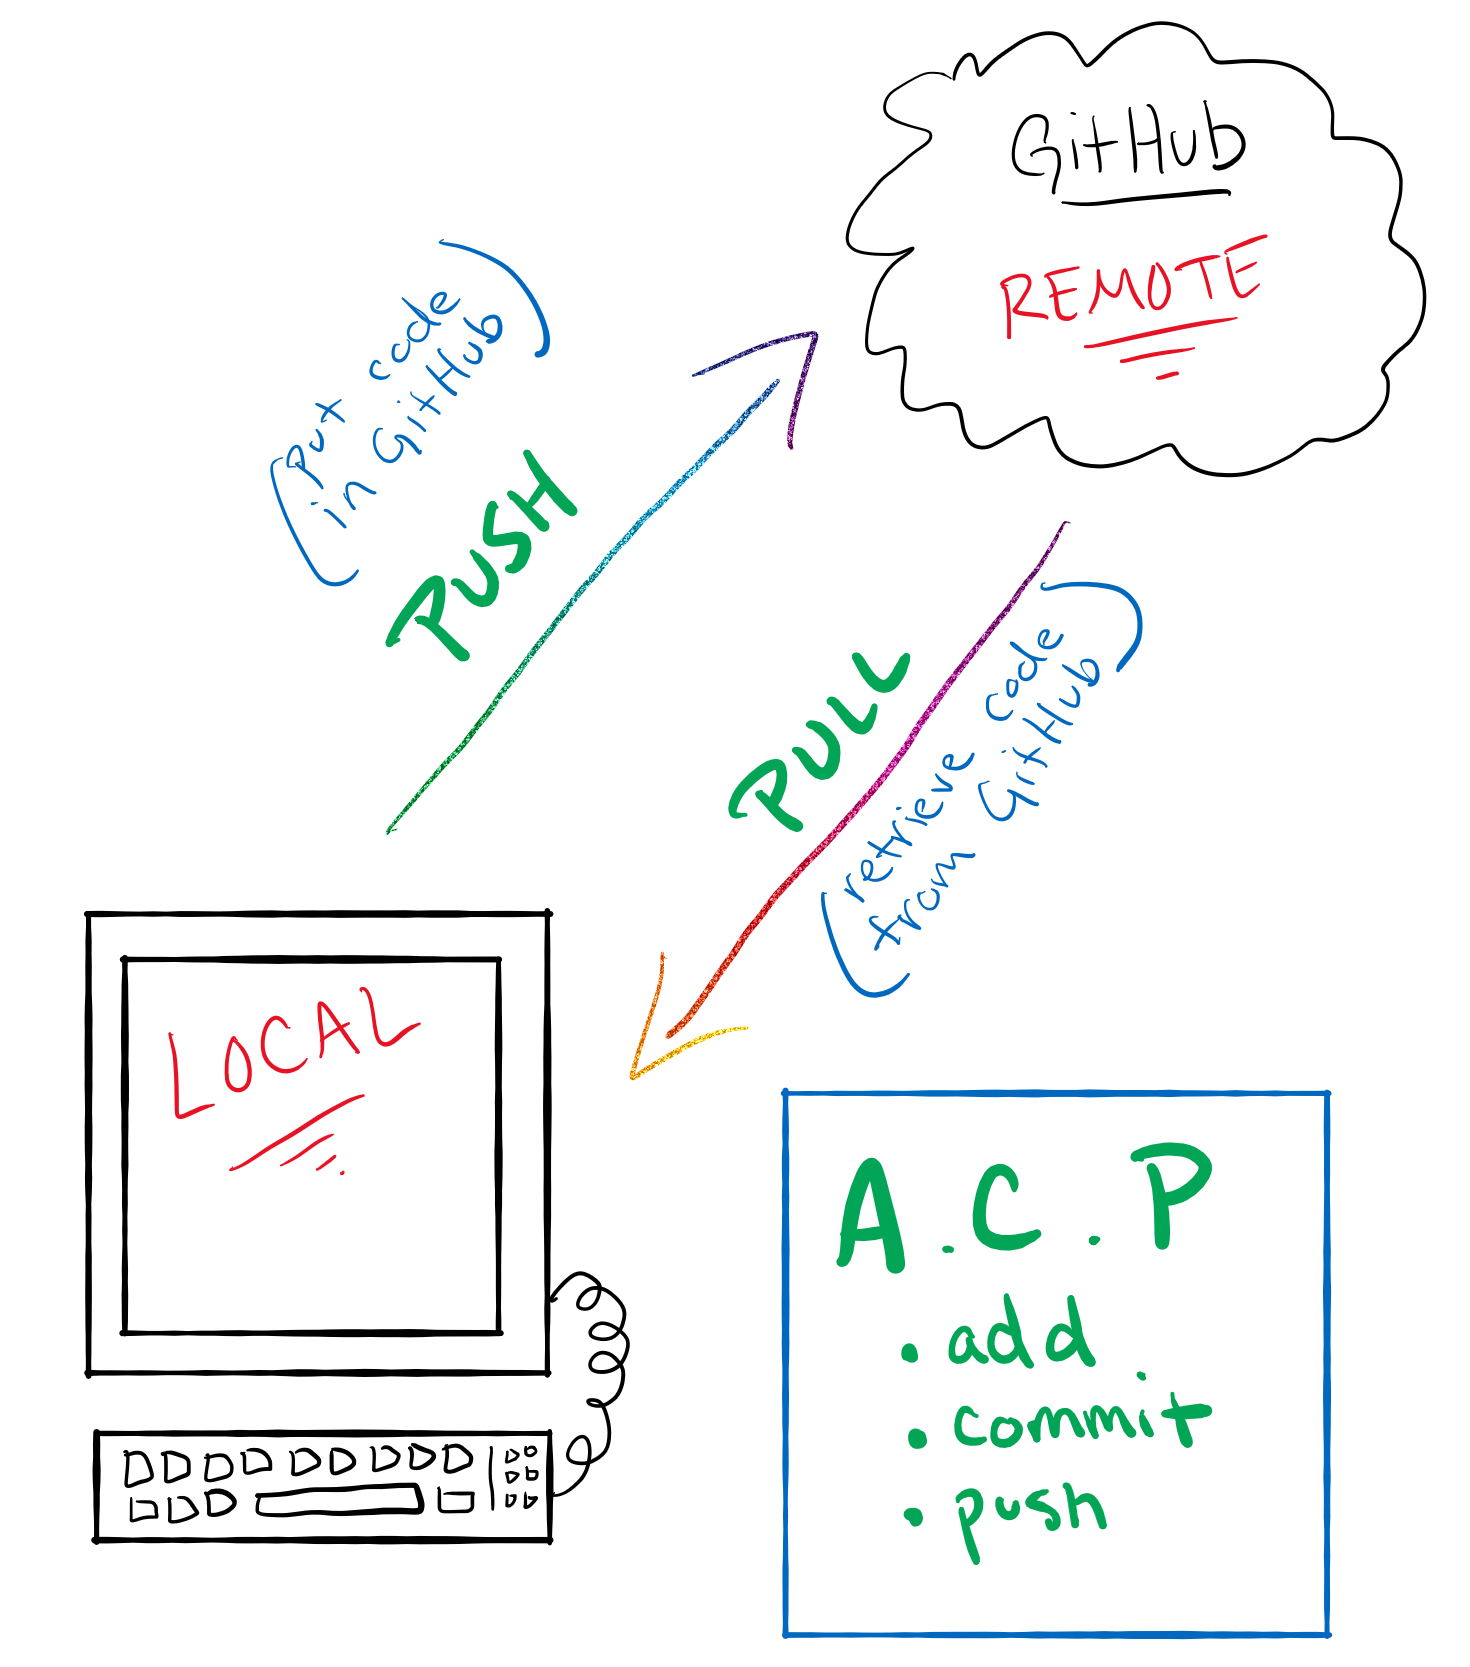 GitHub
REMOTE
(put code
in GitHub)
PUSH
PULL
(retrieve code
from GitHub)
LOCAL
A.C.P
• add
• commit
• push